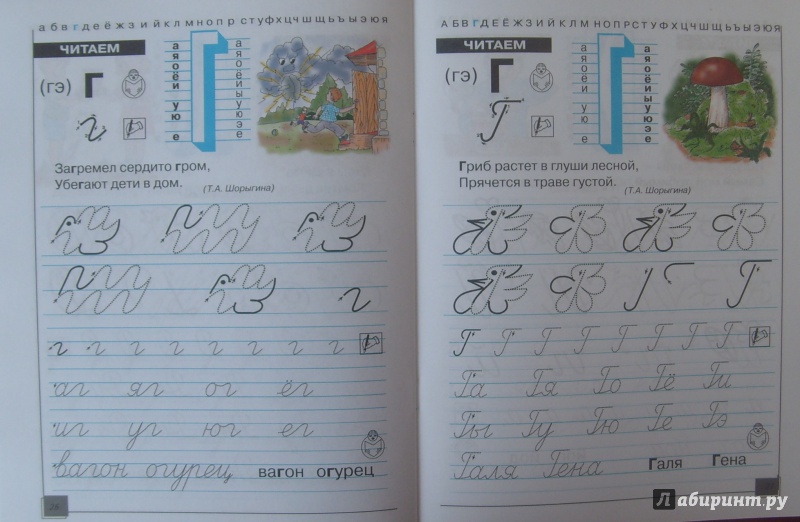 а б в г д е ё ж з и й к л м н о п р с т у ф х ц ч ш щ ъ ы ь э ю я
ЧИТАЕМ
(гэ) Г
г
Загремел сердито гром,
Убегают дети в дом.
(Т.А. Шорыгина)
г
г г г г г г г г
аг яг ог ёг
иг уг юг ег
вагон огурец вагон огурец
26
А Б В Г Д Е Ё Ж З И Й К Л М Н О П Р С Т У Ф Х Ц Ч Ш Щ Ь Ъ Ы Э Ю Я
ЧИТАЕМ
(гэ) Г
Г
Гриб растет в глуши лесной,
Прячется в траве густой.
(Т.А. Шорыгина)
Г
Г Г Г Г Г Г Г Г
Га Гя Го Гё Ги
Гы Гу Гю Ге Гэ
Галя Гена Галя Гена
Лабиринт.ру